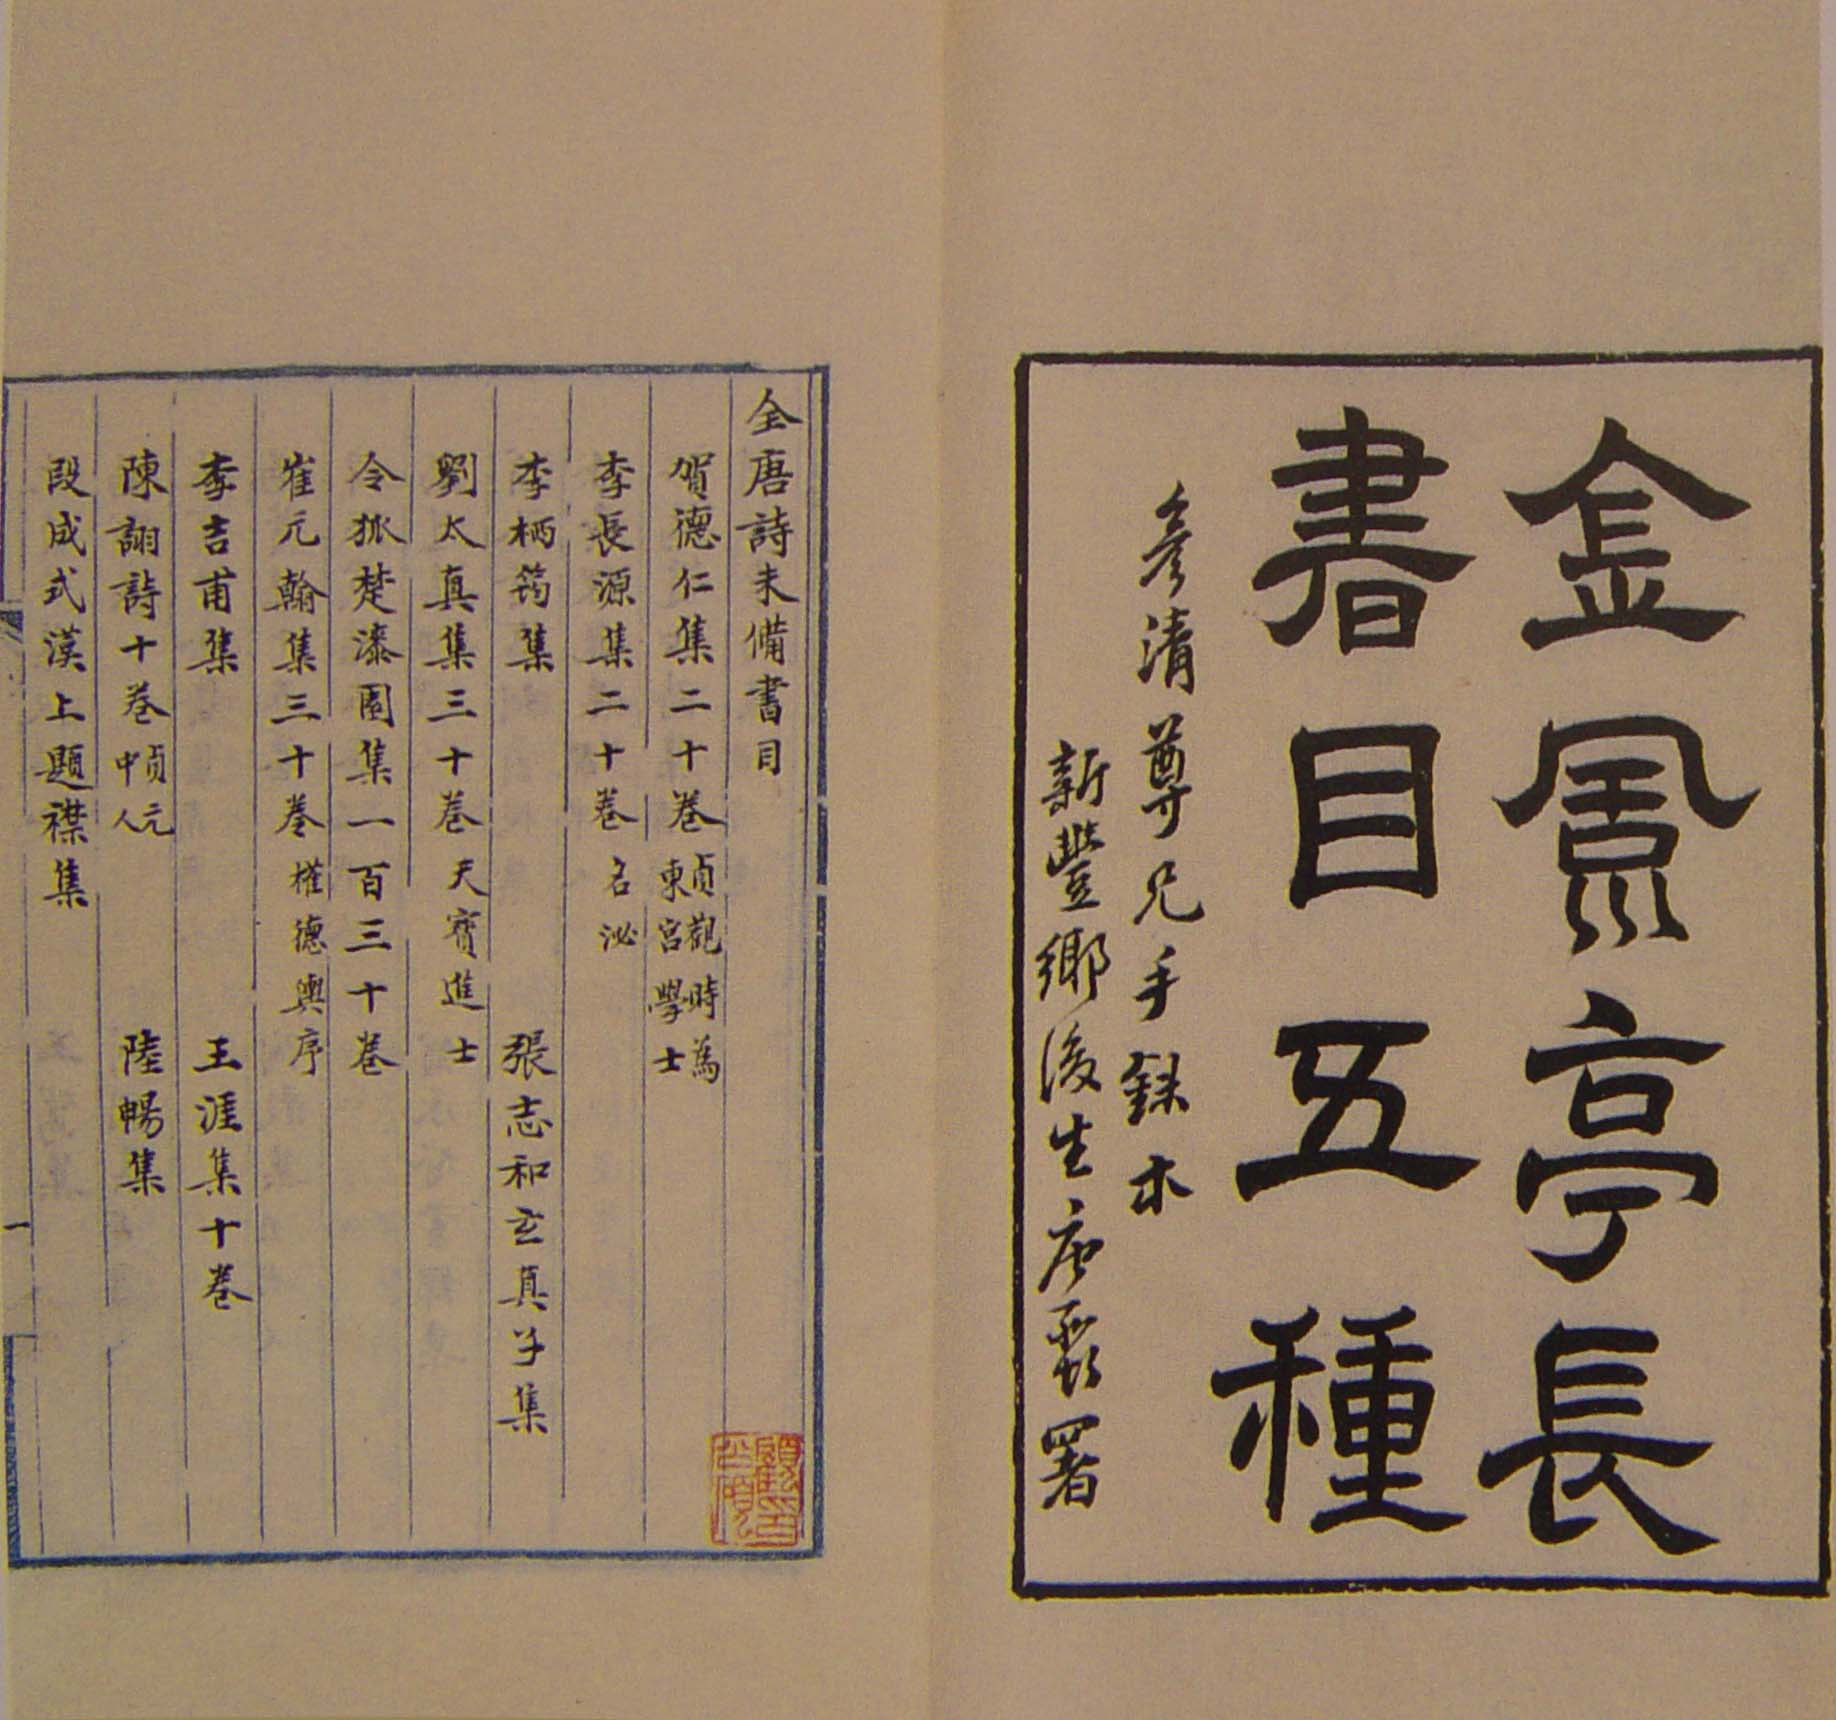 金風亭長
書目五種
彥清尊兄手錄本
新豐鄉後生唐翰署
全唐詩未備書目
賀德仁集二十卷 貞觀時為東宮學士
李長源集二十卷 名泌
李栖筠集 張志和玄真子集
劉太真集三十卷 天寶進士
令狐楚漆園集一百三十卷
崔元翰集三十卷 權德輿序
李吉甫集 王涯集十卷
陳詡詩十卷 貞元中人 陸暢集
段成式漢上題襟集
一